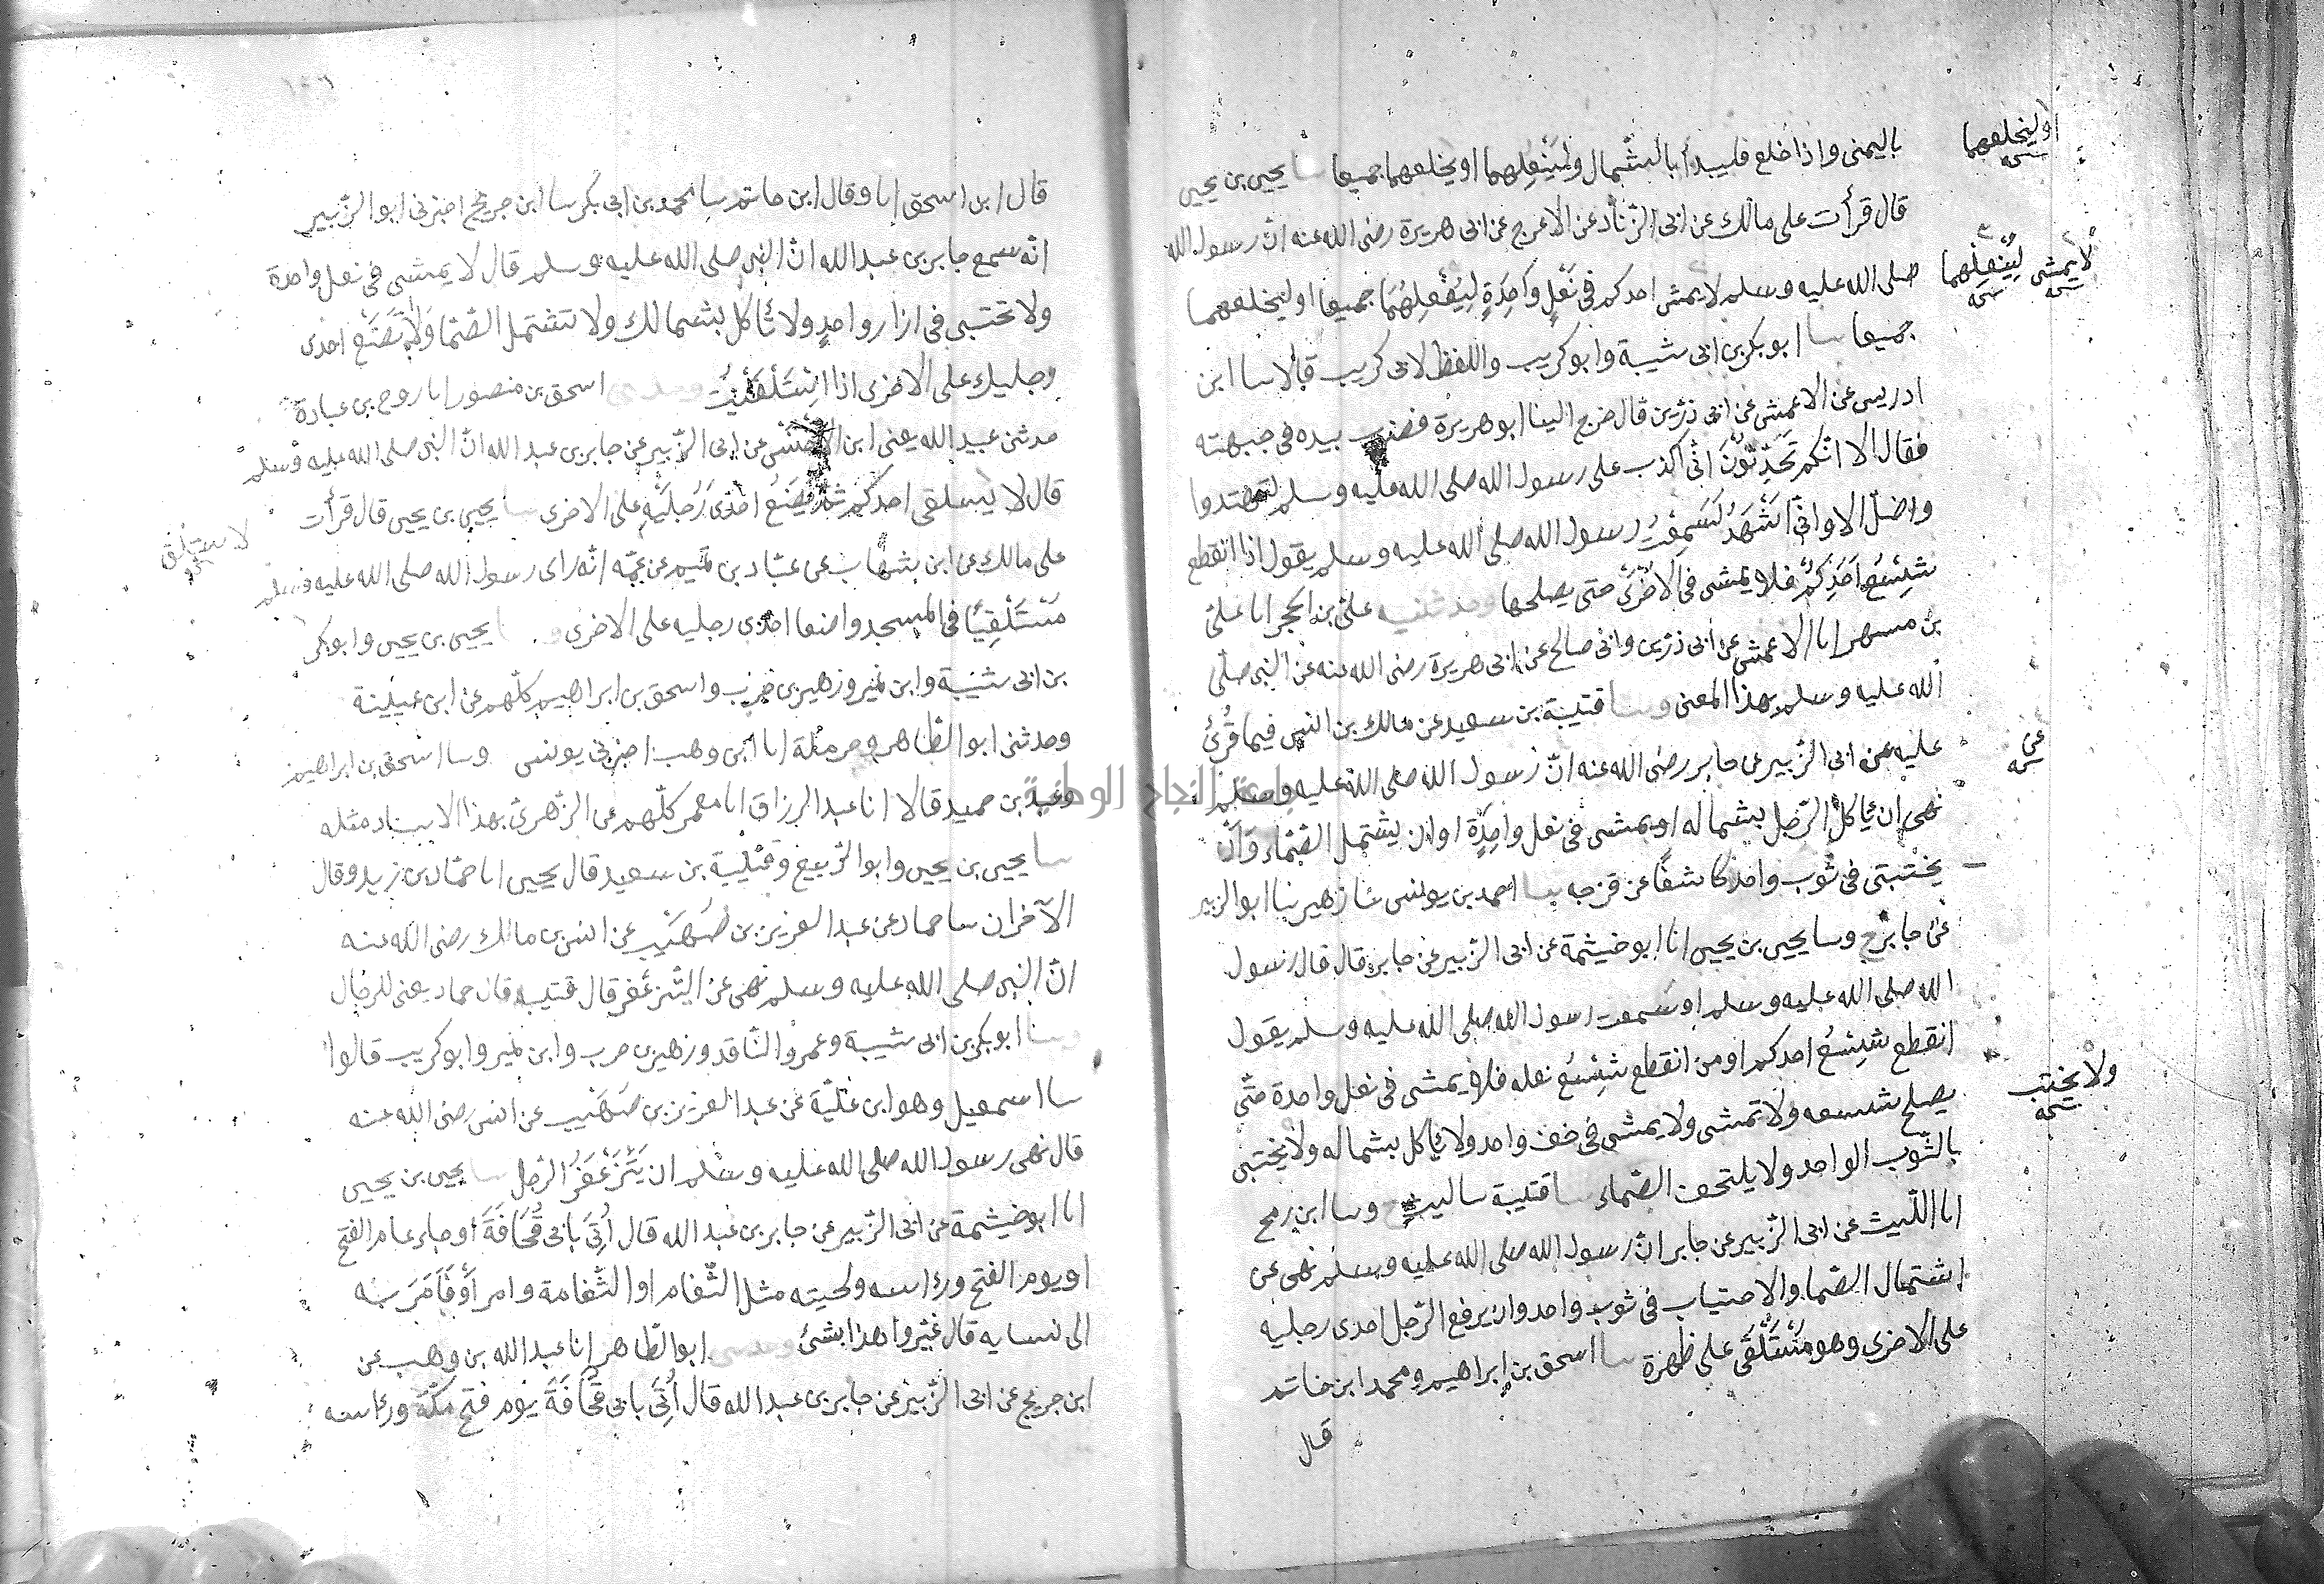 باليمنى واذا خلع فليبدأ بالشمال ولينعلهما او يخلعهما جميعا سا يحيى بن يحيى
اوليخلعهما
قال قرأت على مالك عن ابى الزناد عن الاعرج عن ابى هريرة رضى الله عنه ان رسول الله
صلى الله عليه وسلم لا يمش احدكم فى نعل واحدة لينعلهما جميعا او ليخلعهما
لا يمشى لينعلهما
جميعا سا ابو بكر بن ابى شيبة وابو كريب واللفظ لابى كريب قالا سا ابن
ادريس عن الاعمش عن ابى رزين قال خرج الينا ابو هريرة فضرب بيده فى جبهته
فقال الا انكم تحدثون انى اكذب على رسول الله صلى الله عليه وسلم لتهتدوا
واضل الا وانى اشهد لسمعت رسول الله صلى الله عليه وسلم يقول اذا انقطع
شسع احدكم فلا يمشى فى الاخرى حتى يصلحها وحدثنيه على بن الحجر انا على
بن مسهر انا الاعمش عن ابى رزين وابى صالح عن ابى هريرة رضى الله عنه عن النبى صلى
الله عليه وسلم بهذا المعنى وسا قتيبة بن سعيد عن مالك بن انس فيما قرئ
عليه عن ابى الزبير عن جابر رضى الله عنه ان رسول الله صلى الله عليه وسلم
عن
نهى ان ياكل الرجل بشماله او يمشى فى نعل واحدة او ان يشتمل الصماء وان
يحتبى فى ثوب واحد كاشفا عن فرجه سا احمد بن يونس سا زهير سا ابو الزبير
عن جابر ح وسا يحيى بن يحيى انا ابو خيثمة عن ابى الزبير عن جابر قال قال رسول
الله صلى الله عليه وسلم او سمعت رسول الله صلى الله عليه وسلم يقول
انقطع شسع احدكم او من انقطع شسع نعله فلا يمشى فى نعل واحدة حتى
يصلح شسعه ولا تمشى ولا يمشى فى خف واحد ولا ياكل بشماله ولا يحتبى
ولا يحتب
بالثوب الواحد ولا يلتحف الصماء سا قتيبة سا ليث ح وسا ابن رمح
انا الليث عن ابى الزبير عن جابر ان رسول الله صلى الله عليه وسلم نهى عن
اشتمال الصما والاحتباب فى ثوب واحد وان يرفع الرجل احدى رجليه
على الاخرى وهو مستلقى على ظهره سا اسحق بن ابراهيم ومحمد ابن حاتم
قال
قال ابن اسحق انا وقال ابن حاتم سا محمد بن ابى بكر سا ابن جريج اخبرنى ابو الزبير
انه سمع جابر بن عبد الله ان النبى صلى الله عليه وسلم قال لا يمشى فى نعل واحدة
ولا تحتبى فى ازار واحد ولا تاكل بشمالك ولا تشتمل الصما ولا تضع احدى
رجليك على الاخرى اذا استلقيت وحدثنى اسحق بن منصور انا روح بن عبادة
حدثنى عبيد الله يعنى ابن الاخنس عن ابى الزبير عن جابر بن عبد الله ان النبى صلى الله عليه وسلم
قال لا يستلقى احدكم ثم يضع احدى رجليه على الاخرى سا يحيى بن يحيى قال قرأت
لا يستلق
على مالك عن ابن شهاب عن عباد بن تميم عن عمه انه راى رسول الله صلى الله عليه وسلم
مستلقيا فى المسجد واضعا احدى رجليه على الاخرى سا يحيى بن يحيى وابو بكر
بن ابى شيبة وابن نمير وزهير بن حرب واسحق بن ابراهيم كلهم عن ابن عيينة
وحدثنى ابو الطاهر وحرملة انا ابن وهب اخبرنى يونس وسا اسحق بن ابراهيم
وعبد بن حميد قالا انا عبد الرزاق انا معمر كلهم عن الزهرى بهذا الاسناد مثله
سا يحيى بن يحيى وابو الربيع وقتيبة بن سعيد قال يحيى انا حماد بن زيد وقال
الآخران سا حماد عن عبد العزيز بن صهيب عن انس بن مالك رضى الله عنه
ان النبى صلى الله عليه وسلم نهى عن التزعفر قال قتيبه قال حماد يعنى للرجال
وسا ابو بكر بن ابى شيبة وعمرو الناقد وزهير بن حرب وابن نمير وابو كريب قالوا
سا اسمعيل وهو ابن علية عن عبد العزيز بن صهيب عن انس رضى الله عنه
قال نهى رسول الله صلى الله عليه وسلم ان يتزعفر الرجل سا يحيى بن يحيى
انا ابو خيثمة عن ابى الزبير عن جابر بن عبد الله قال أتى بابى قحافة او جاء عام الفتح
او يوم الفتح وراسه ولحيته مثل الثغام او الثغامة وامر او فامر به
الى نسايه قال غيروا هذا بشئ وحدثنى ابو الطاهر انا عبد الله بن وهب عن
ابن جريج عن ابى الزبير عن جابر بن عبد الله قال أتى بابى قحافة يوم فتح مكة وراسه
جامعة النجاح الوطنية